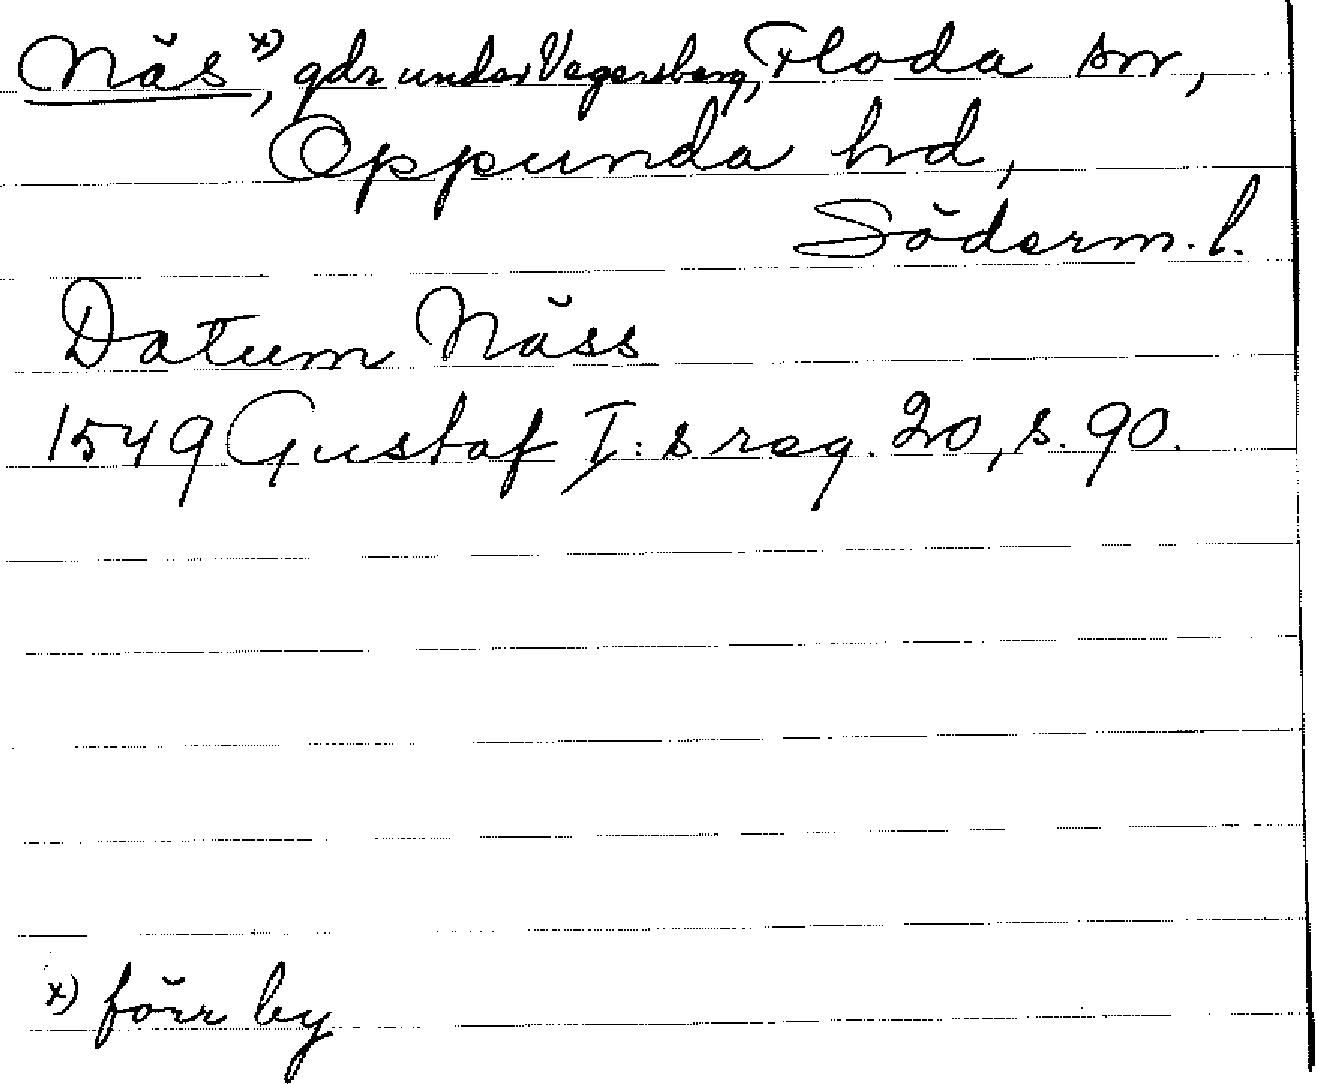 Näs x), gdr under Vegersberg, Floda sn,
Oppunda hd,
Söderm. l.
Datum Näss
1549 Gustaf I:s reg. 20, s. 90.
x) förr by